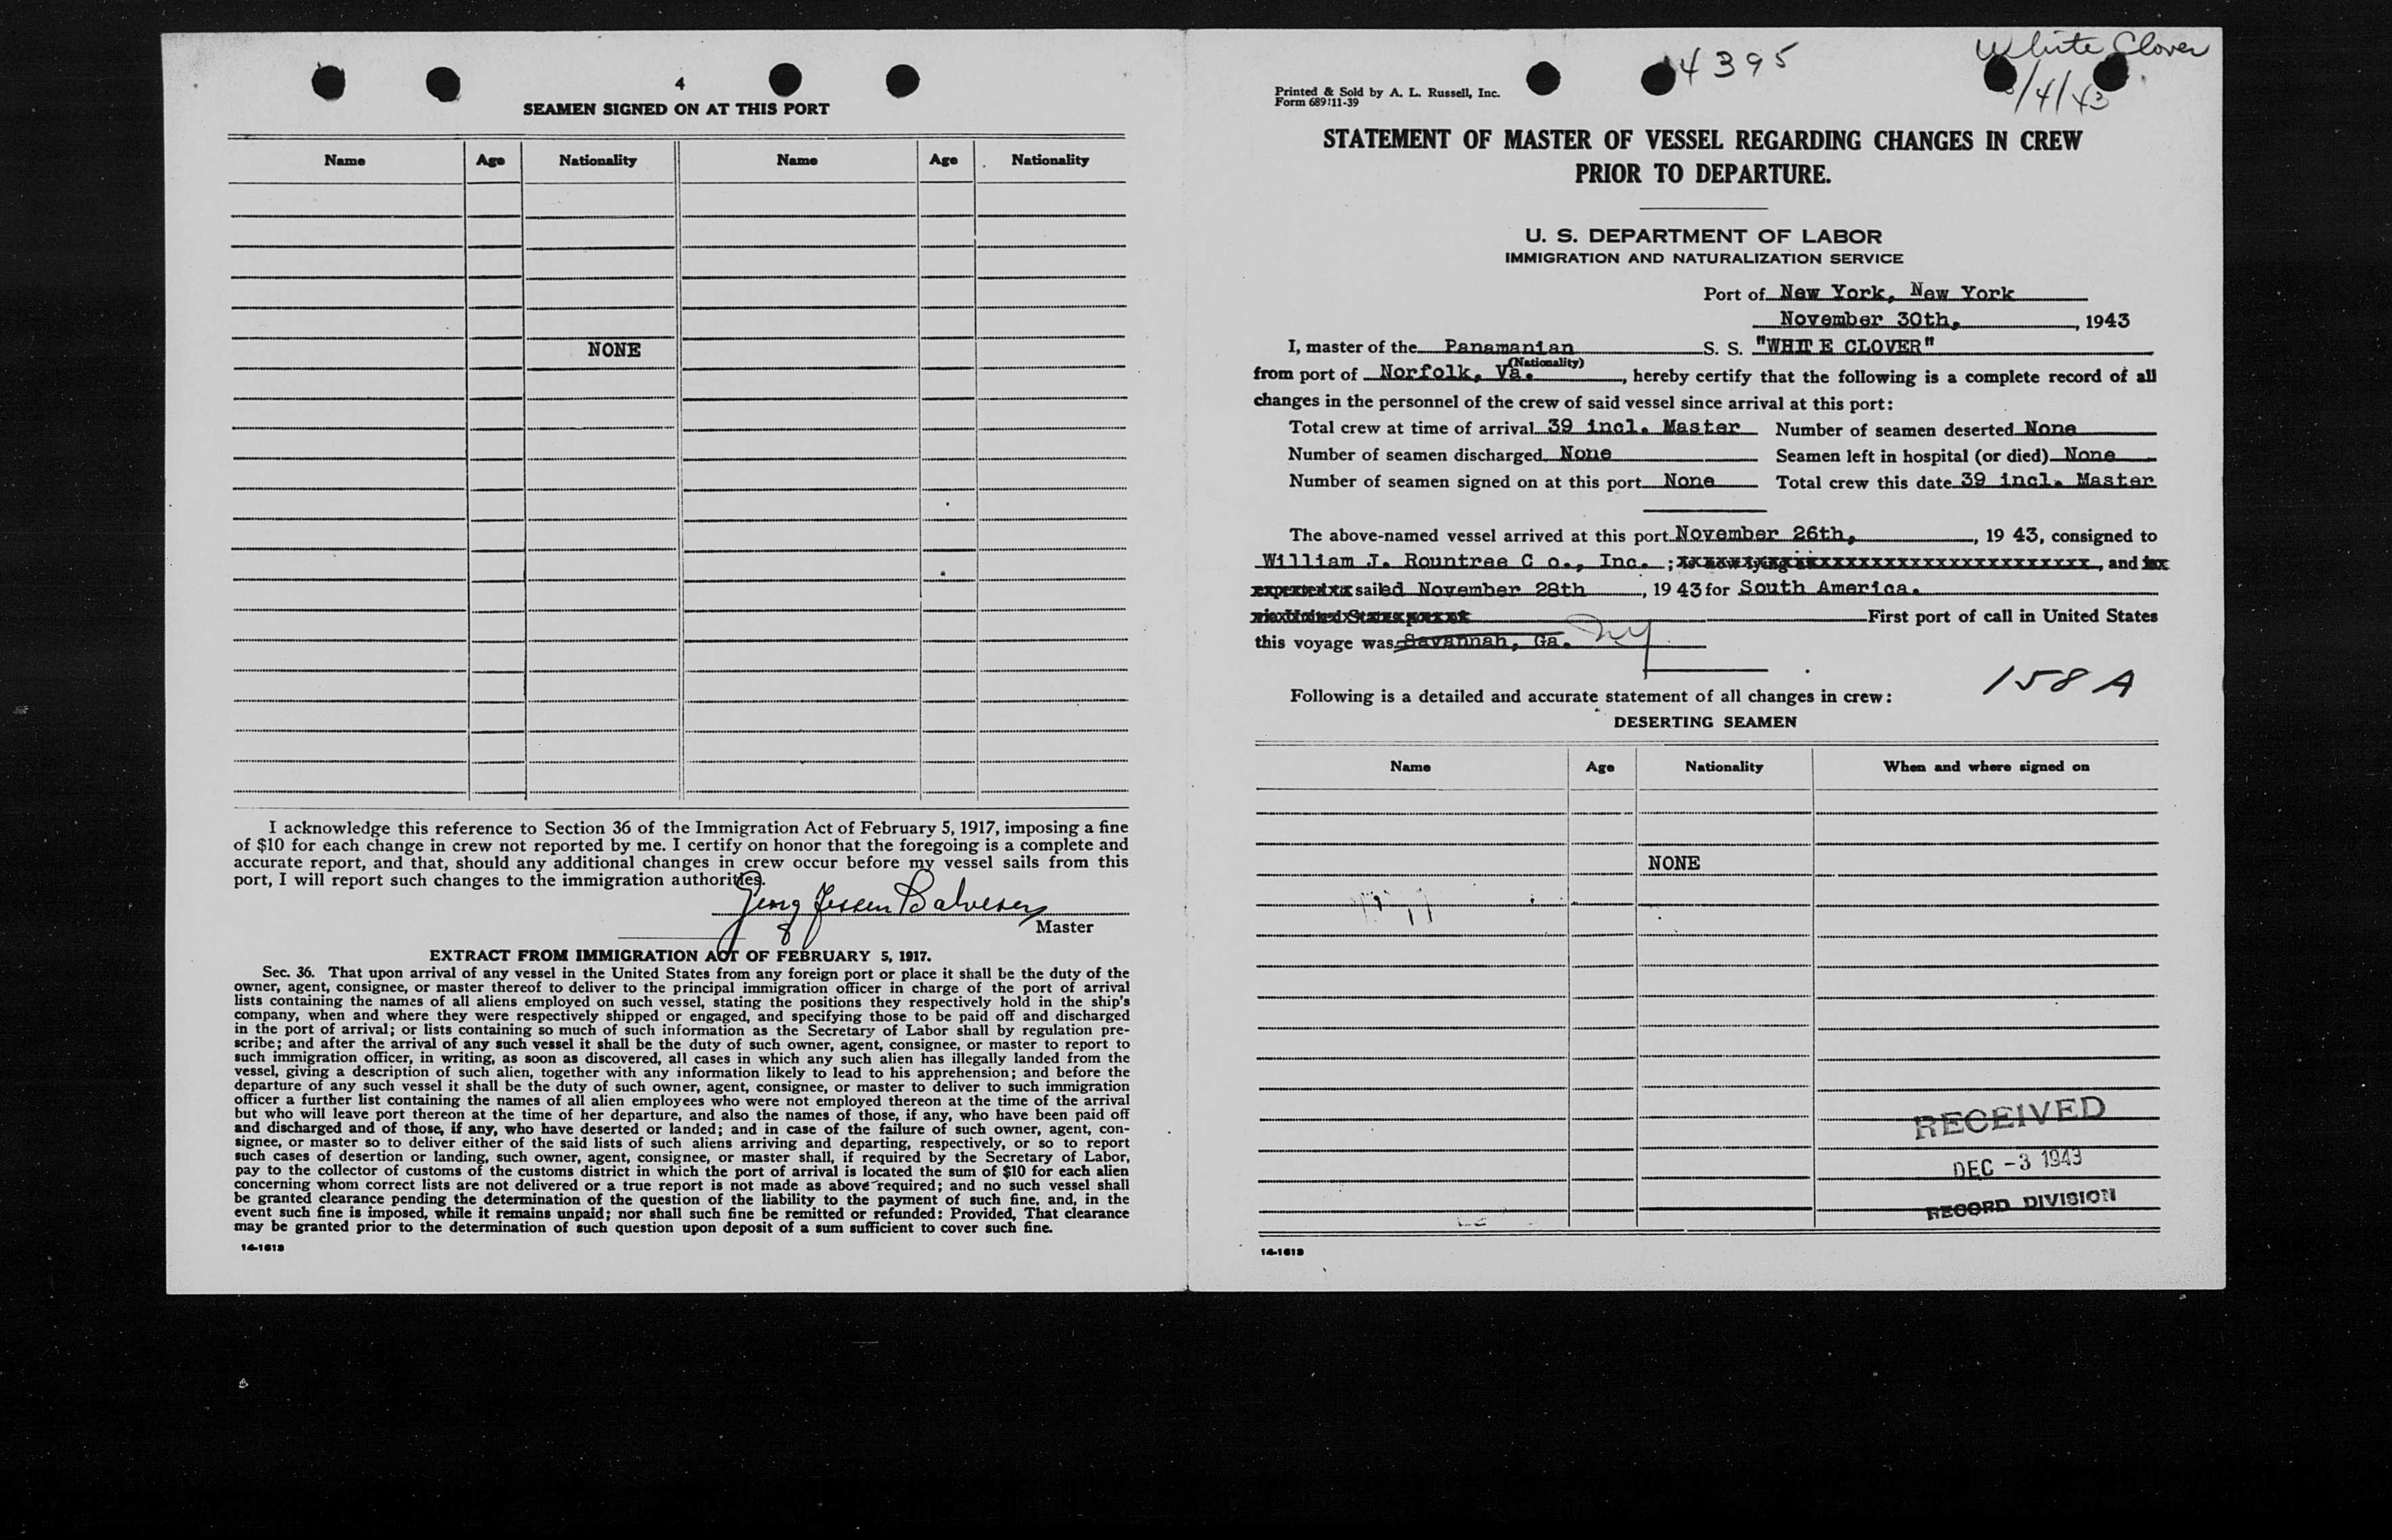 4
SEAMEN SIGNED ON AT THIS PORT
Name Age Nationality Name Age Nationality
NONE
I acknowledge this reference to Section 36 of the Immigration Act of February 5, 1917, imposing a fine
of $10 for each change in crew not reported by me. I certify on honor that the foregoing is a complete and
accurate report, and that, should any additional changes in crew occur before my vessel sails from this
port, I will report such changes to the immigration authorities.
Jessen
Master
EXTRACT FROM IMMIGRATION ACT OF FEBRUARY 5, 1917.
Sec. 36. That upon arrival of any vessel in the United States from any foreign port or place it shall be the duty of the
owner, agent, consignee, or master thereof to deliver to the principal immigration officer in charge of the port of arrival
lists containing the names of all aliens employed on such vessel, stating the positions they respectively hold in the ship's
company, when and where they were respectively shipped or engaged, and specifying those to be paid off and discharged
in the port of arrival; or lists containing so much of such information as the Secretary of Labor shall by regulation pre-
scribe; and after the arrival of any such vessel it shall be the duty of such owner, agent, consignee, or master to report to
such immigration officer, in writing, as soon as discovered, all cases in which any such alien has illegally landed from the
vessel, giving a description of such alien, together with any information likely to lead to his apprehension; and before the
departure of any such vessel it shall be the duty of such owner, agent, consignee, or master to deliver to such immigration
officer a further list containing the names of all alien employees who were not employed thereon at the time of the arrival
but who will leave port thereon at the time of her departure, and also the names of those, if any, who have been paid off
and discharged and of those, if any, who have deserted or landed; and in case of the failure of such owner, agent, con-
signee, or master so to deliver either of the said lists of such aliens arriving and departing, respectively, or so to report
such cases of desertion or landing, such owner, agent, consignee, or master shall, if required by the Secretary of Labor,
pay to the collector of customs of the customs district in which the port of arrival is located the sum of $10 for each alien
concerning whom correct lists are not delivered or a true report is not made as above required; and no such vessel shall
be granted clearance pending the determination of the question of the liability to the payment of such fine, and, in the
event such fine is imposed, while it remains unpaid; nor shall such fine be remitted or refunded: Provided, That clearance
may be granted prior to the determination of such question upon deposit of a sum sufficient to cover such fine.
14-1613
4395
White Clover
/4/43
Printed & Sold by A. L. Russell, Inc.
Form 689:11-39
STATEMENT OF MASTER OF VESSEL REGARDING CHANGES IN CREW
PRIOR TO DEPARTURE.
U. S. DEPARTMENT OF LABOR
IMMIGRATION AND NATURALIZATION SERVICE
Port of New York, New York
November 30th, , 1943
I, master of the Panamanian S. S. "WHITE CLOVER"
(Nationality)
from port of Norfolk, Va. , hereby certify that the following is a complete record of all
changes in the personnel of the crew of said vessel since arrival at this port:
Total crew at time of arrival 39 incl. Master Number of seamen deserted None
Number of seamen discharged None Seamen left in hospital (or died) None
Number of seamen signed on at this port None Total crew this date 39 incl. Master
The above-named vessel arrived at this port November 26th, , 19 43, consigned to
William J. Rountree C o., Inc. ; , and
sailed November 28th , 19 43 for South America.
First port of call in United States
this voyage was Savannah, Ga. NY
158 A
Following is a detailed and accurate statement of all changes in crew:
DESERTING SEAMEN
Name Age Nationality When and where signed on
NONE
RECEIVED
DEC -3 1943
RECORD DIVISION
14-1613